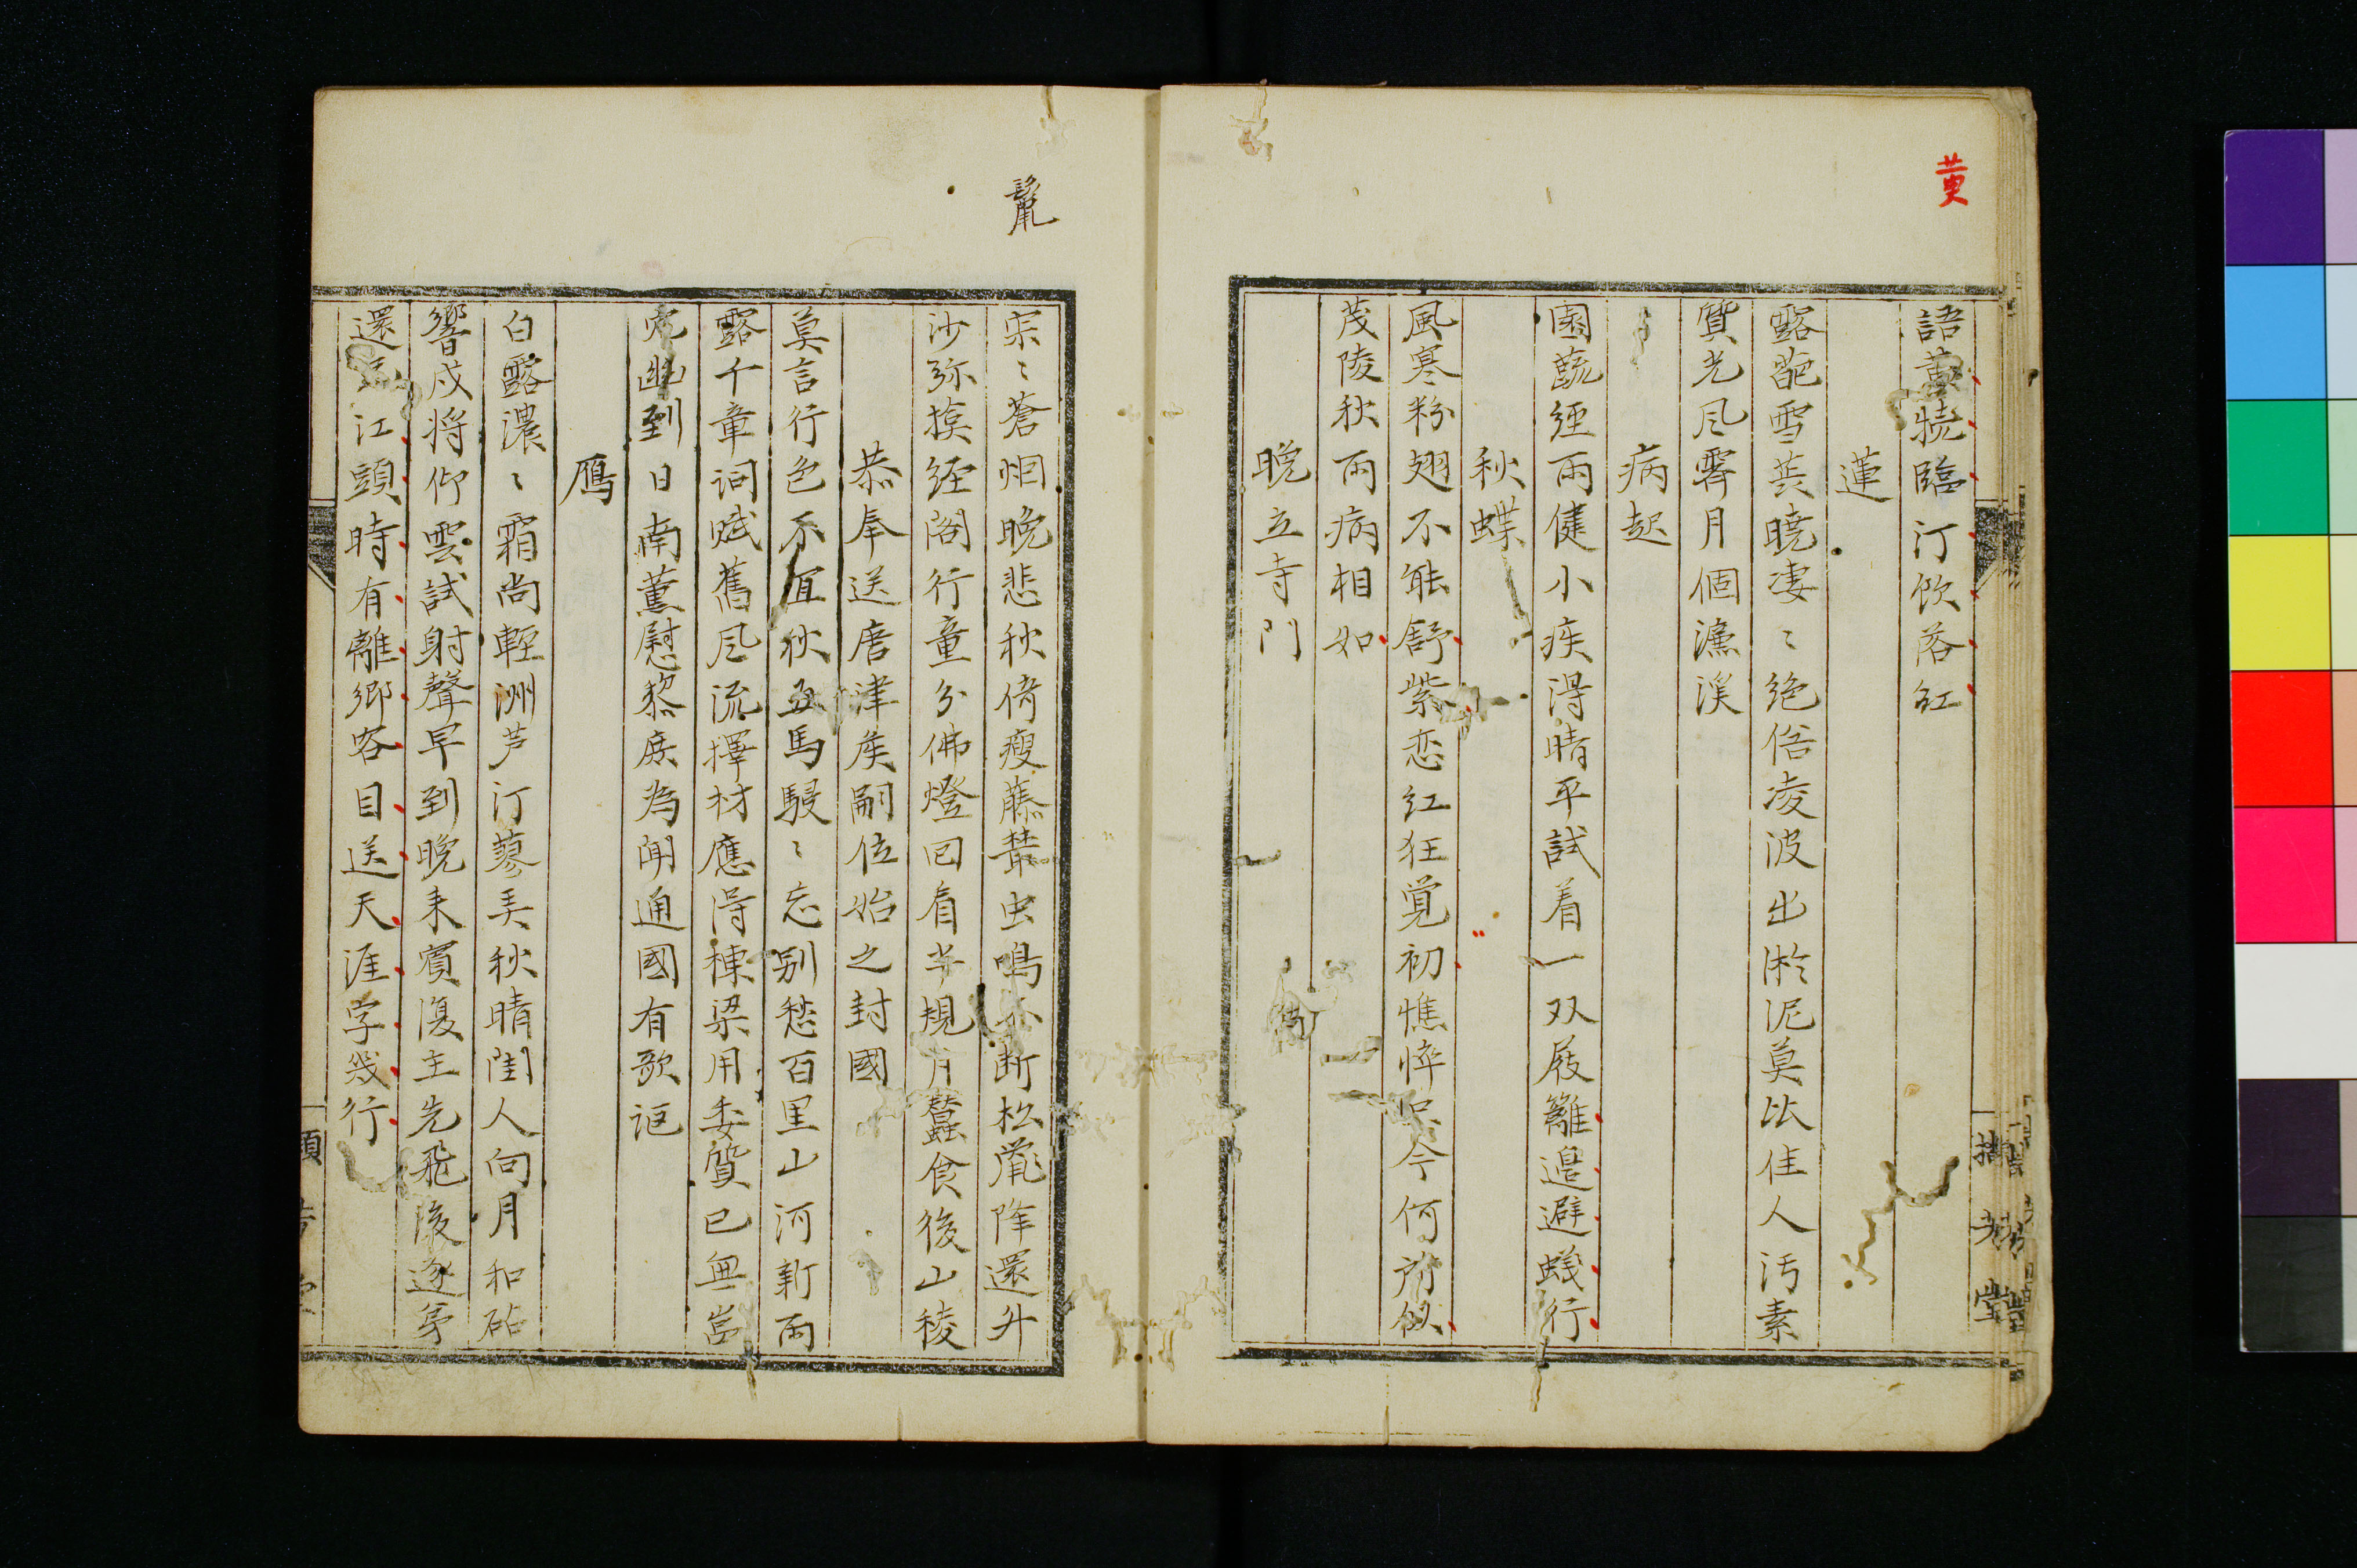 黄
語黄犢臨汀飲落紅
蓮
露葩雪蕋曉凄〻絶俗凌波出淤泥莫比佳人汚素
質光風霽月個濂溪
病起
園蔬經雨健小疾得晴平試着一双屐籬邊避蟻行
秋蝶
風寒粉翅不能舒紫恋紅狂覚初憔悴只今何所似
茂陵秋雨病相如
晩立寺門
擷芳堂
鬣
寀〻蒼烟晩悲秋倚瘦藤叢虫鳴不断松鼡降還升
沙弥摸経閣行童分佛燈回看半規月蠶食後山稜
恭奉送唐津侯嗣位始之封國
莫言行色不宜秋五馬駸〻忘别愁百里山河新雨
露千章詞賦舊風流擇材應得棟梁用委質已無嵓
穴幽到日南薫慰黎庶為聞通國有歌謳
鴈
白露濃〻霜尚軽洲芦汀蓼美秋晴閨人向月和砧
響戍将仰雲試射聲早到晩来賓復主先飛後逐弟
還兄江頭時有離郷客目送天涯字幾行